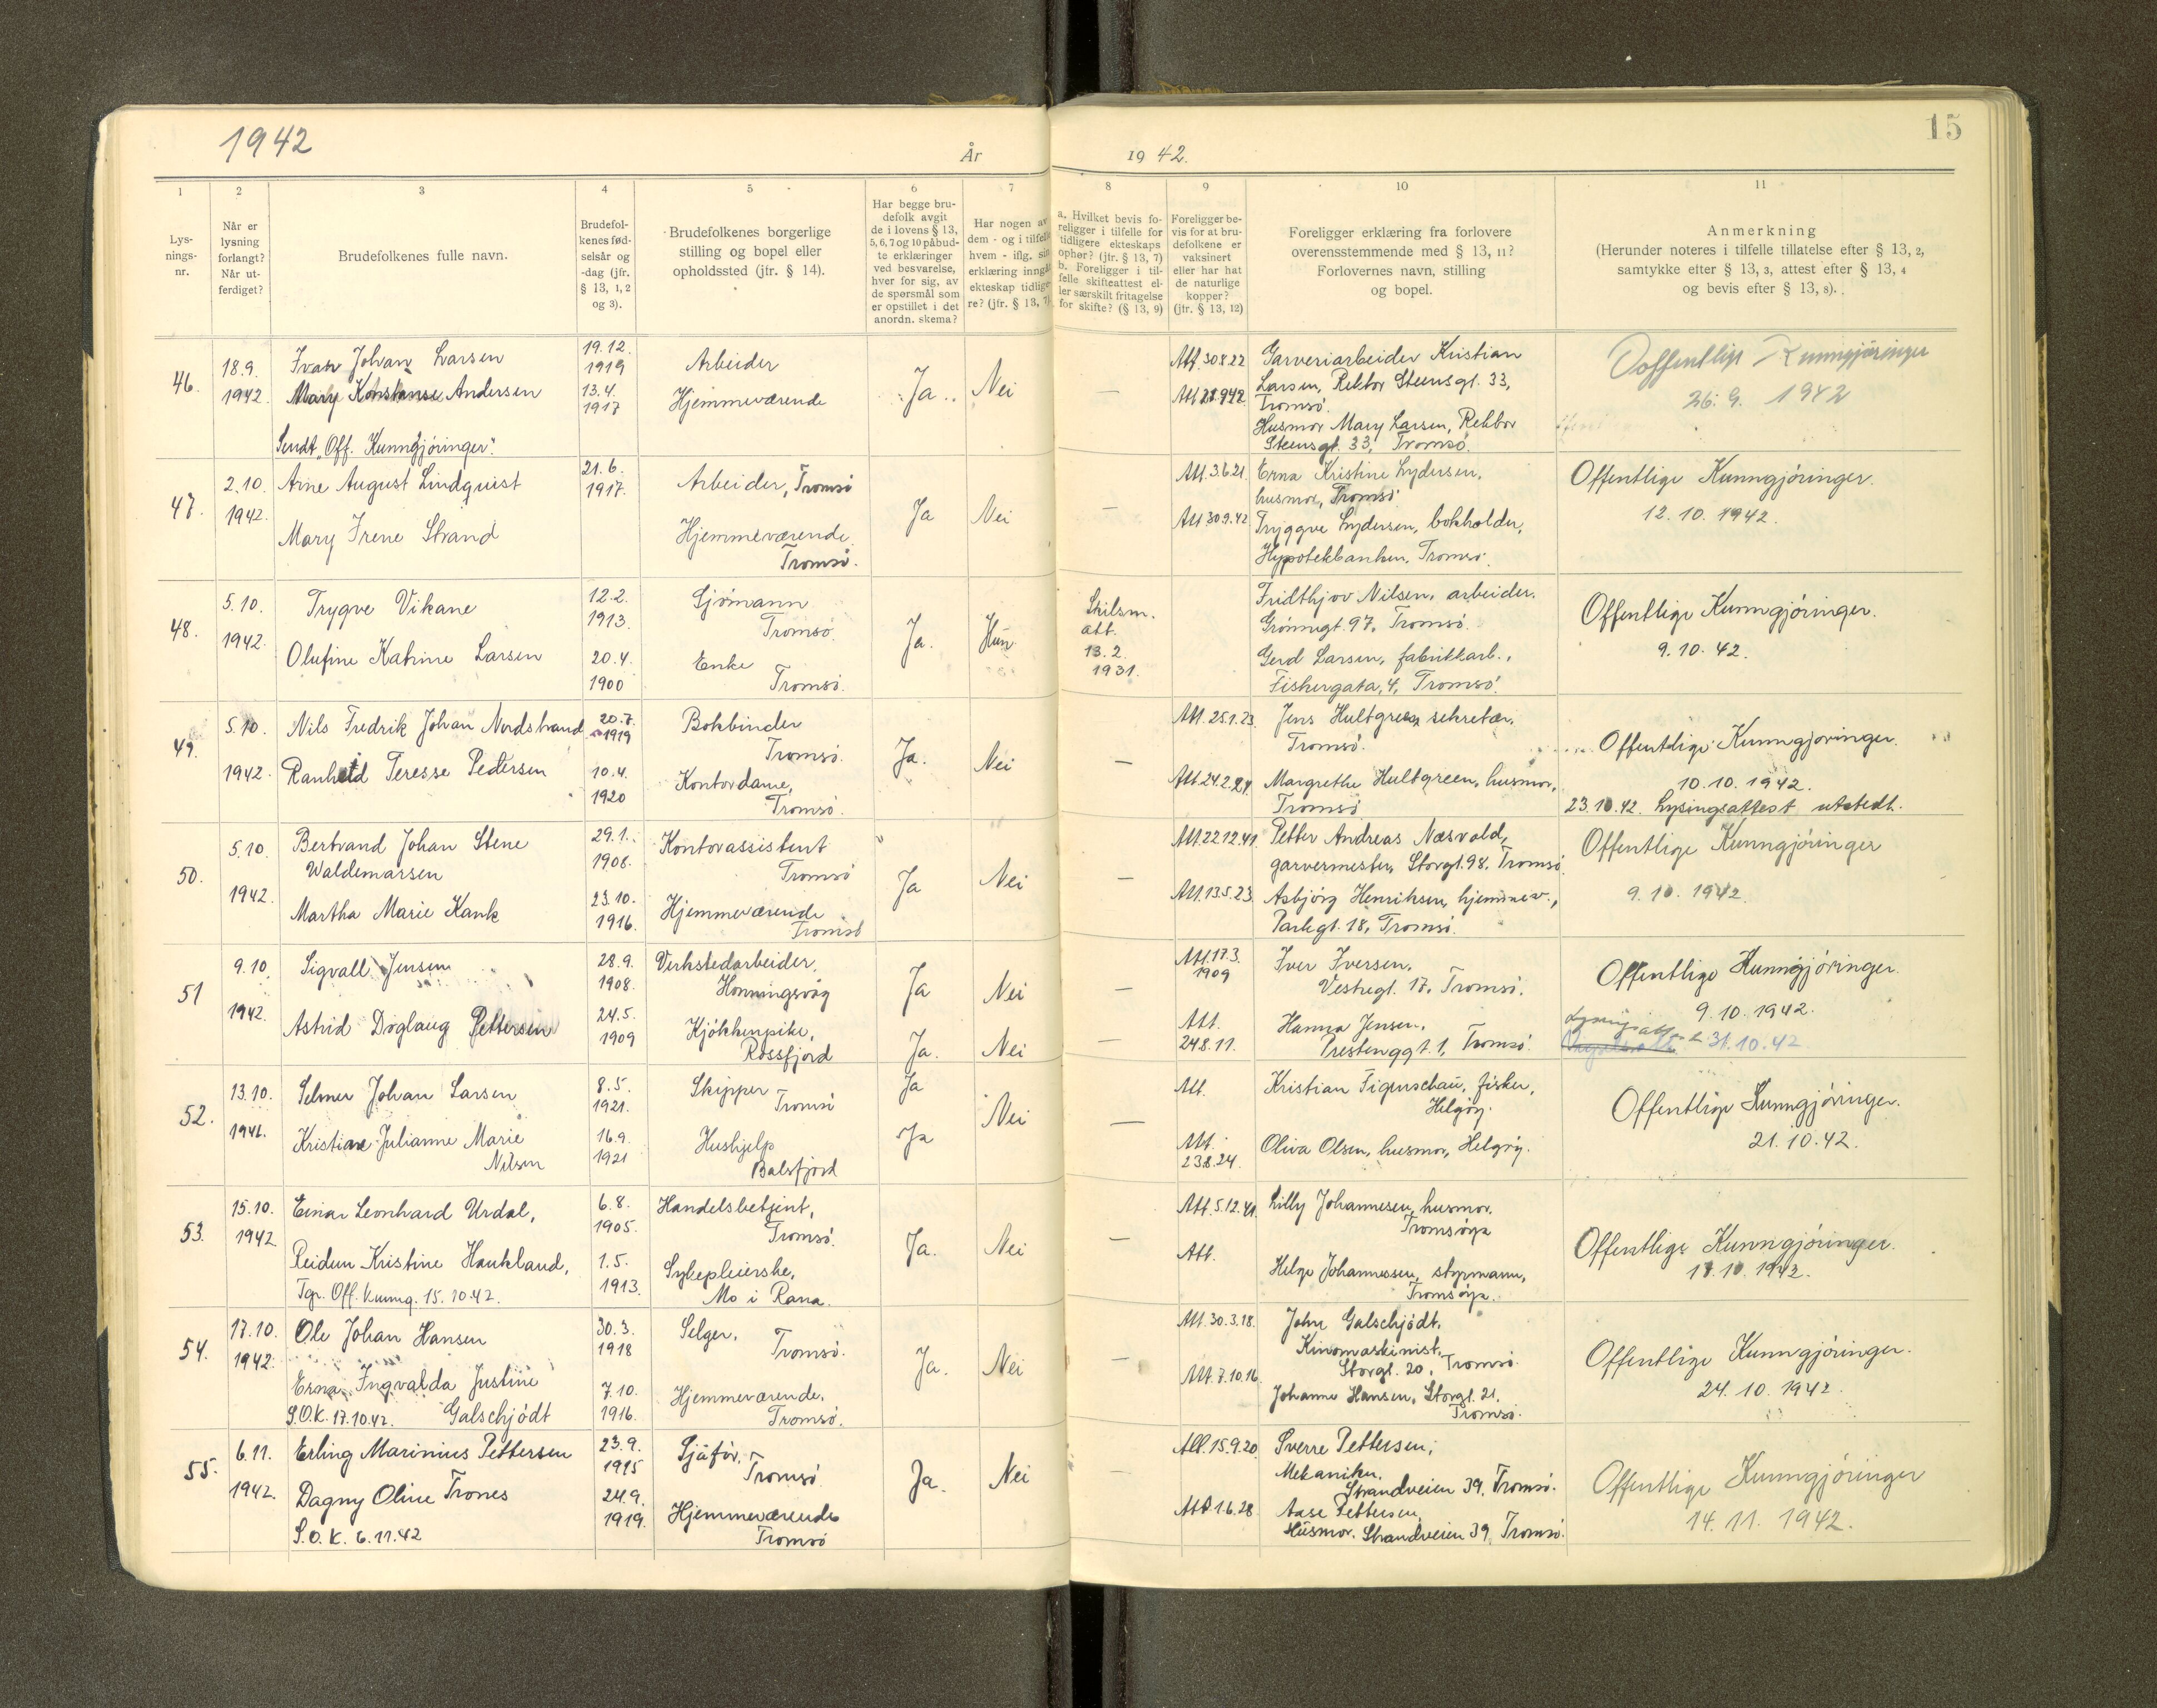 1942
År
19 42.
15
1
2
3
4
5
6
7
8
9
10
11
Lys-
nings-
nr.
Når er
lysning
forlangt?
Når ut-
ferdiget?
Brudefolkenes fulle navn.
Brudefol-
kenes fød-
selsår og
-dag (jfr.
§ 13, 1, 2
og 3).
Brudefolkenes borgerlige
stilling og bopel eller
opholdssted (jfr. § 14).
Har begge bru-
defolk avgit
de i lovens § 13,
5, 6, 7 og 10 påbud-
te erklæringer
ved besvarelse,
hver for sig, av
de spørsmål som
er opstillet i det
anordn. skema?
Har nogen av
dem - og i tilfelle
hvem - iflg. sin
erklæring inngått
ekteskap tidlige-
re? (jfr. § 13, 7)
a. Hvilket bevis fo-
religger i tilfelle for
tidligere ekteskaps
ophør? (jfr. § 13, 7)
b. Foreligger i til-
felle skifteattest el-
ler særskilt fritagelse
for skifte? (§ 13, 9)
Foreligger be-
vis for at bru-
defolkene er
vaksinert
eller har hat
de naturlige
kopper?
(jfr. § 13, 12)
Foreligger erklæring fra forlovere
overensstemmende med § 13, 11?
Forlovernes navn, stilling
og bopel.
Anmerkning
(Herunder noteres i tilfelle tillatelse efter § 13, 2,
samtykke efter § 13, 3, attest efter § 13, 4
og bevis efter § 13, 8).
46.
18.9.
1942
Ivar Johan Larsen
Mary Konstanse Andersen
Sendt "Off. Kunngjöringer".
19.12.
1919
13.4.
1917
Arbeider
Hjemmeværende
Ja
Nei
—
Att. 30.8.22
Att 21.9.42
Garveriarbeider Kristian
Larsen, Rektor Steensgt. 33,
Tromsö.
Husmor Mary Larsen, Rektor
Steensgt. 33, Tromsö.
Offentlige Kunngjöringer
26. 9. 1942
47.
2.10.
1942.
Arne August Lindquist
Mary Irene Strand
21.6.
1917.
Arbeider, Tromsö
Hjemmeværende
Tromsö.
Ja
Nei
—
Att. 3.6.21.
Att 30.9.42
Erna Kristine Lydersen,
husmor, Tromsö.
Tryggve Lydersen, bokholder,
Hypotekbanken, Tromsö.
Offentlige Kunngjöringer.
12. 10. 1942.
48.
5.10.
1942.
Trygve Vikane
Olufine Katrine Larsen
12.2.
1913.
20.4.
1900
Sjömann
Tromsö.
Enke
Tromsö.
Ja.
Hun
Skilsm.
att.
13.2.
1931.
Fridthjov Nilsen, arbeider.
Grönnegt. 97, Tromsö.
Gerd Larsen, fabrikkarb.,
Fiskergata, 4, Tromsö.
Offentlige Kunngjöringer.
9. 10. 42.
49.
5.10.
1942.
Nils Fredrik Johan Nordstrand
Ranheid Teresse Pedersen
20.7.
1919
10.4.
1920
Bokbinder
Tromsö.
Kontordame,
Tromsö.
Ja.
Nei
—
Att. 25.1.23.
Att. 24.2.24.
Jens Hultgreen, sekretær,
Tromsö.
Margrethe Hultgreen, husmor,
Tromsö
Offentlige Kunngjöringer.
10. 10. 1942.
23.10.42. Lysingsattest utstedt.
50.
5.10.
1942.
Bertrand Johan Stene
Waldemarsen
Martha Marie Kank
29.1.
1908.
23.10.
1916.
Kontorassistent
Tromsö
Hjemmeværende
Tromsö
Ja
Nei
—
Att. 22.12.41.
Att. 13.5.23.
Petter Andreas Næsvold,
garvermester, Storgt. 98, Tromsö.
Asbjörg Henriksen, hjemmev.,
Parkgt. 18, Tromsö.
Offentlige Kunngjöringer
9. 10. 1942.
51
9.10.
1942.
Sigvall Jensen
Astrid Doglaug Pettersen
28.9.
1908.
24.5.
1909
Verkstedarbeider,
Honningsvåg
Kjökkenpike,
Rossfjord
Ja
Ja.
Nei
Nei
—
—
Att. 17.3.
1909
Att.
24.8.11.
Iver Iversen,
Vestregt. 17, Tromsö.
Hanna Jensen,
Prestenggt. 1, Tromsö.
Offentlige Kunngjöringer.
9. 10. 1942.
31.10.42
52.
13.10.
1942.
Selmer Johan Larsen
Kristiane Julianne Marie
Nilsen
8.5.
1921.
16.9.
1921
Skipper
Tromsö
Hushjelp
Balsfjord
Ja
Ja
Nei
—
Att.
Att.
23.8.24.
Kristian Figenschau, fisker,
Helgöy.
Oliva Olsen, husmor, Helgöy.
Offentlige Kunngjöringer.
21. 10. 42.
53.
15.10.
1942.
Einar Leonhard Urdal,
Reidun Kristine Haukland,
Tgr. Off. kunng. 15.10.42.
6.8.
1905.
1.5.
1913.
Handelsbetjent,
Tromsö.
Sykepleierske,
Mo i Rana.
Ja.
Nei
—
Att. 5.12.41.
Att.
Lilly Johannesen, husmor,
Tromsöya
Helge Johannessen, styrmann,
Tromsöya.
Offentlige Kunngjöringer.
17. 10. 1942.
54.
17.10.
1942.
Ole Johan Hansen
Erna Ingvalda Justine
S.O.K. 17.10.42. Galschjödt
30.3.
1918
7.10.
1916.
Selger,
Tromsö.
Hjemmeværende,
Tromsö.
Ja.
Nei
—
Att. 30.3.18.
Att. 7.10.16.
John Galschjödt,
Kinomaskinist,
Storgt. 20, Tromsö.
Johanne Hansen, Storgt. 21,
Tromsö.
Offentlige Kunngjöringer.
24. 10. 1942.
55.
6.11.
1942.
Erling Marinius Pettersen
Dagny Oline Trones
S.O.K. 6.11.42
23.9.
1915
24.9.
1919.
Sjåför,
Tromsö
Hjemmeværende
Tromsö
Ja.
Nei
—
Att. 15.9.20.
Att 1.6.28
Sverre Pettersen,
Mekaniker,
Strandveien 39, Tromsö.
Aase Pettersen,
Husmor, Strandveien 39, Tromsö.
Offentlige Kunngjöringer
14. 11. 1942.